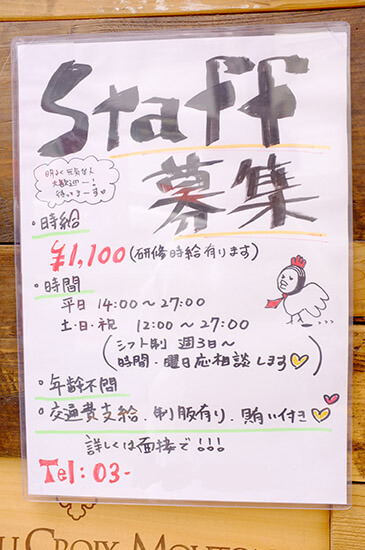 Staff
募集
明るく元気な人
大歓迎ー！
待ってまーす♡
・時給
¥1,100(研修時給有ります)
・時間
平日 14:00〜27:00
土・日・祝 12:00〜27:00
(シフト制 週3日〜
時間・曜日応相談します♡)
・年齢不問
・交通費支給．制服有り．賄い付き♡
詳しくは面接で!!!
Tel:03-
CROIX MOUTON